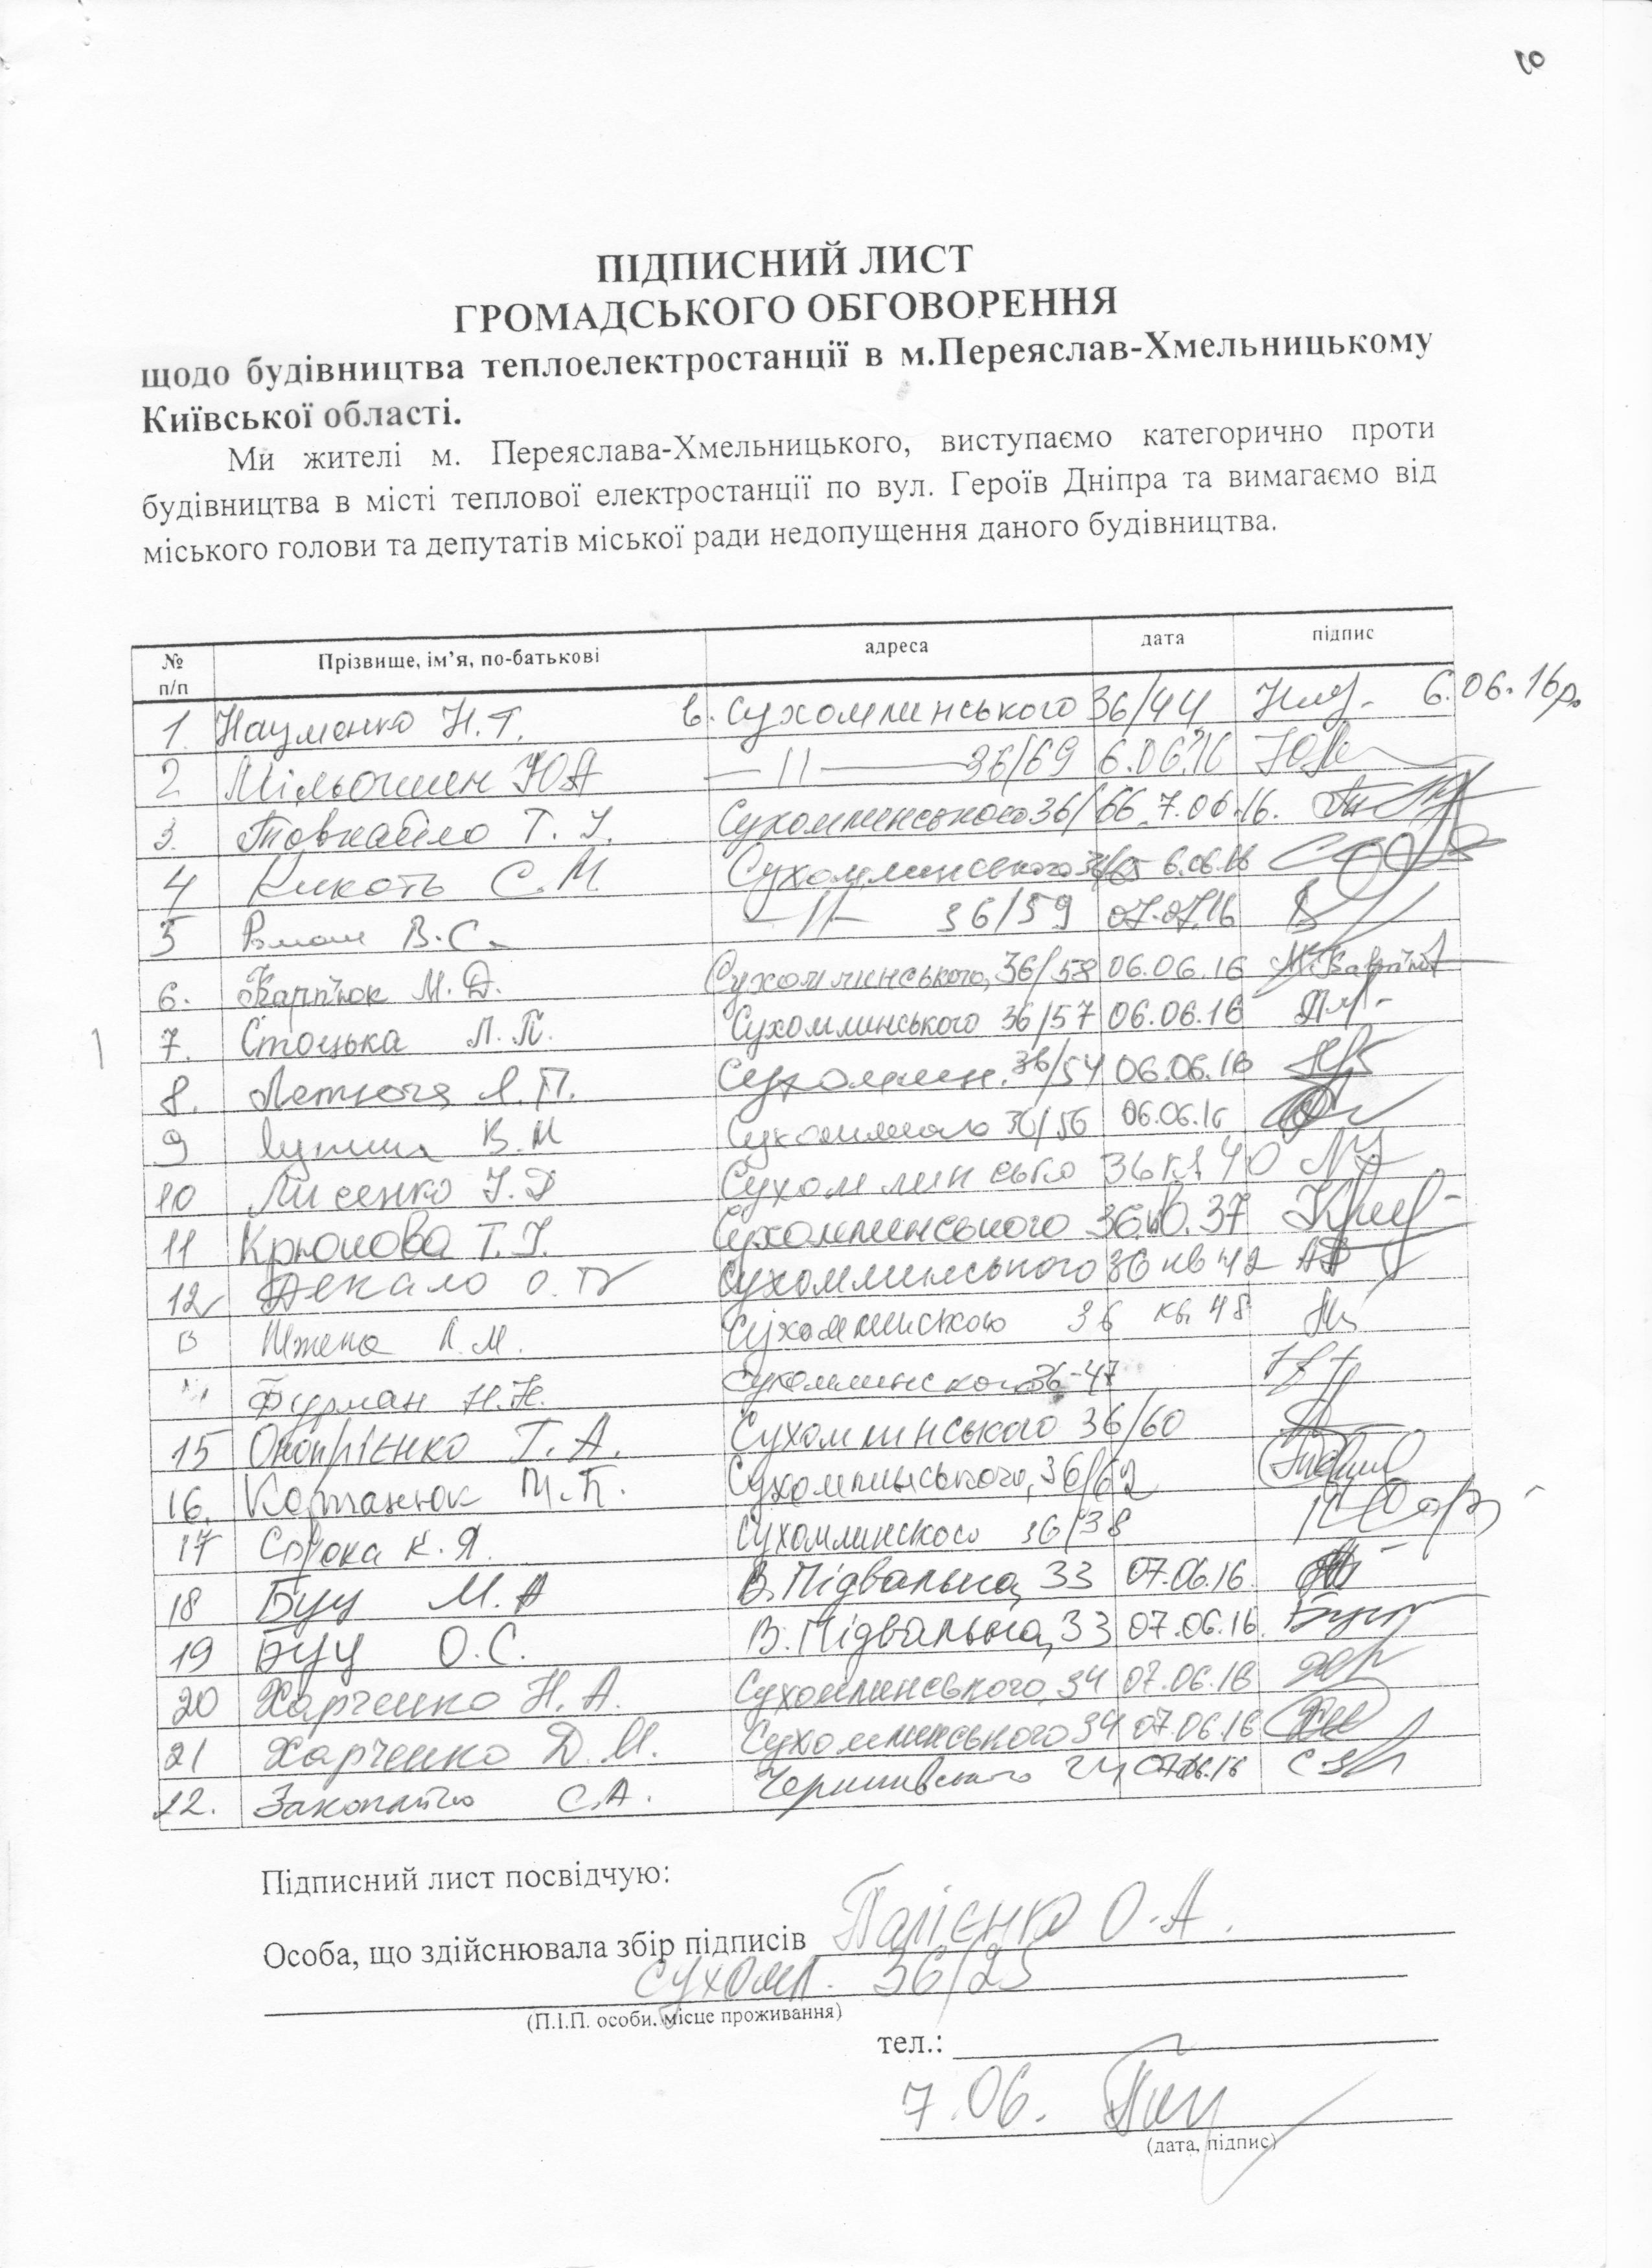 ПІДПИСНИЙ ЛИСТ
ГРОМАДСЬКОГО ОБГОВОРЕННЯ
щодо будівництва теплоелектростанції в м.Переяслав-Хмельницькому
Київської області.
Ми жителі м. Переяслава-Хмельницького, виступаємо категорично проти
будівництва в місті теплової електростанції по вул. Героїв Дніпра та вимагаємо від
міського голови та депутатів міської ради недопущення даного будівництва.
№ п/п Прізвище, ім’я, по-батькові адреса дата підпис
1. Науменко Н.Т. в. Сухомлинського 36/44 6.06.16р.
2 Ю А —11— 36/69 6.06.16
3. Товкайло Т. І. Сухомлинського 36/66 7.06.16.
4 Кикоть С.М. Сухомлинського 6.06.16
5 В.С. —11— 36/59 07.07.16
6. М.Д. Сухомлинського, 36/58 06.06.16
7. Стоцька Л.П. Сухомлинського 36/57 06.06.16
8. Л.П. Сухомлин. 36/54 06.06.16
9 В.М 36/56 06.06.16
10 Лисенко І.Д 36 кв 40
11 Крюкова Т.І. Сухомлинського 36 кв. 37
12 Декало О.П Сухомлинського 36 кв 42
Л.М. 36 кв 48
Фурман Н.Н. 36-47
15 Онопрієнко Т. А. Сухомлинського 36/60
16. М.П. Сухомлинського, 36/62
17 Сорока К.Я. Сухомлинского 36/38
18 Буц М.А В.Підвальна, 33 07.06.16
19 Буц О.С. В.Підвальна, 33 07.06.16.
20 Харченко Н.А. Сухомлинського, 34 07.06.16
21 Харченко Д.М. Сухомлинського 34 07.06.16
22. С.А. 07.06.16
Підписний лист посвідчую:
Особа, що здійснювала збір підписів Палієнко О.А.
Сухомл. 36/25
(П.І.П. особи, місце проживання)
тел.:
7.06.
(дата, підпис)